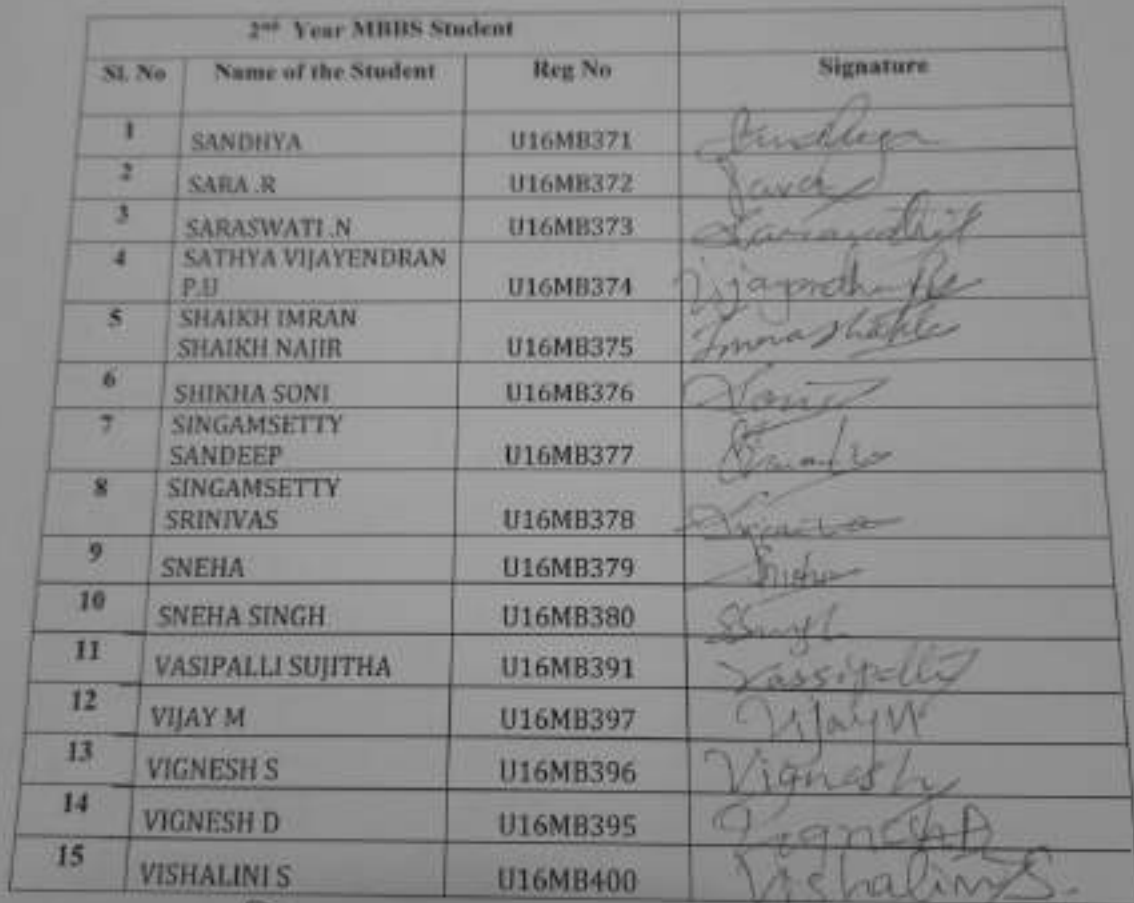 2nd Year MBBS Student
Sl. No Name of the Student Reg No Signature
1 SANDHYA U16MB371 Sandhya
2 SARA .R U16MB372 Sara
3 SARASWATI .N U16MB373
4 SATHYA VIJAYENDRAN
P.U U16MB374
5 SHAIKH IMRAN
SHAIKH NAJIR U16MB375
6 SHIKHA SONI U16MB376 Soni
7 SINGAMSETTY
SANDEEP U16MB377
8 SINGAMSETTY
SRINIVAS U16MB378
9 SNEHA U16MB379
10 SNEHA SINGH U16MB380 SSingh
11 VASIPALLI SUJITHA U16MB391 Vassipalli
12 VIJAY M U16MB397 Vijay M
13 VIGNESH S U16MB396 Vignesh
14 VIGNESH D U16MB395 Vignesh D
15 VISHALINI S U16MB400 Vishalini S.